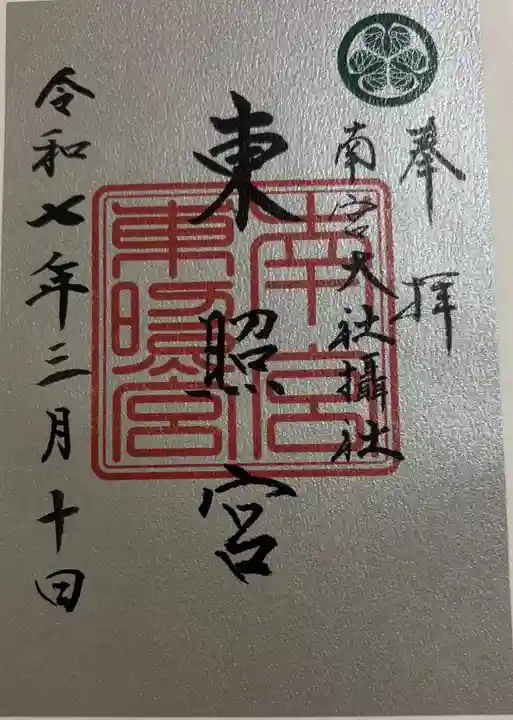 奉拝
南宮大社攝社
東照宮
南宮
東照宮
令和七年三月十日